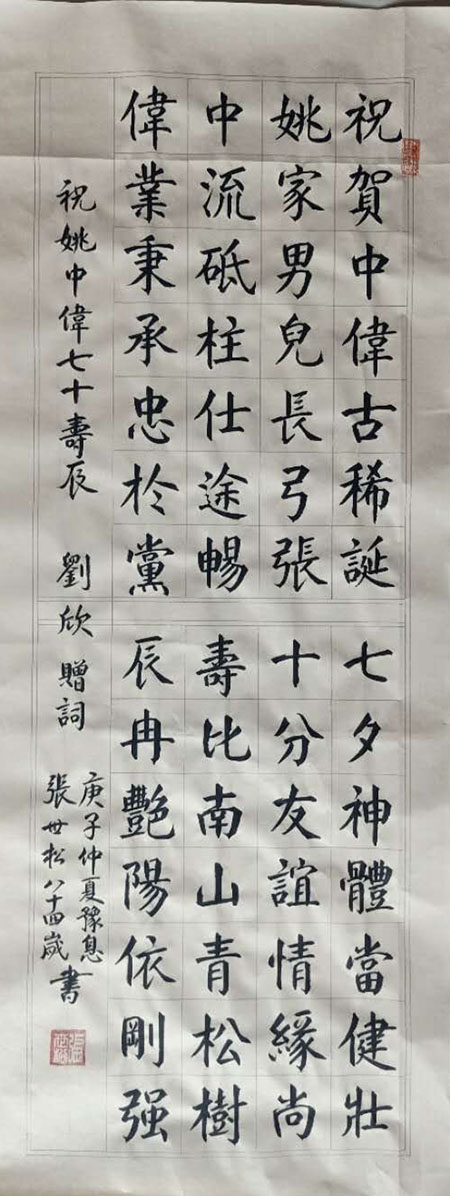 祝賀中偉古稀誕
姚家男兒長弓張
中流砥柱仕途暢
偉業秉承忠於黨
七夕神體當健壯
十分友誼情緣尚
壽比南山青松樹
辰冉艷陽依剛强
祝姚中偉七十壽辰
劉欣贈詞
庚子仲夏豫息
張世松八十四歲書